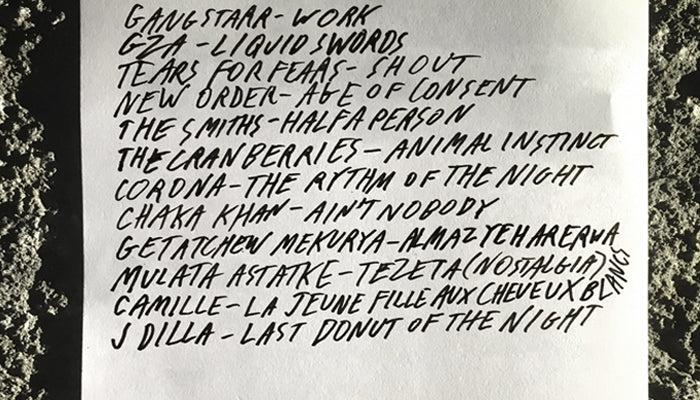 GANGSTARR - WORK
GZA - LIQUID SWORDS
TEARS FOR FEARS - SHOUT
NEW ORDER - AGE OF CONSENT
THE SMITHS - HALF A PERSON
THE CRANBERRIES - ANIMAL INSTINCT
CORONA - THE RYTHM OF THE NIGHT
CHAKA KHAN - AIN'T NOBODY
GETATCHEW MEKURYA - ALMAZ YEHARERWA
MULATA ASTATKE - TEZETA (NOSTALGIA)
CAMILLE - LA JEUNE FILLE AUX CHEVEUX BLANCS
J DILLA - LAST DONUT OF THE NIGHT